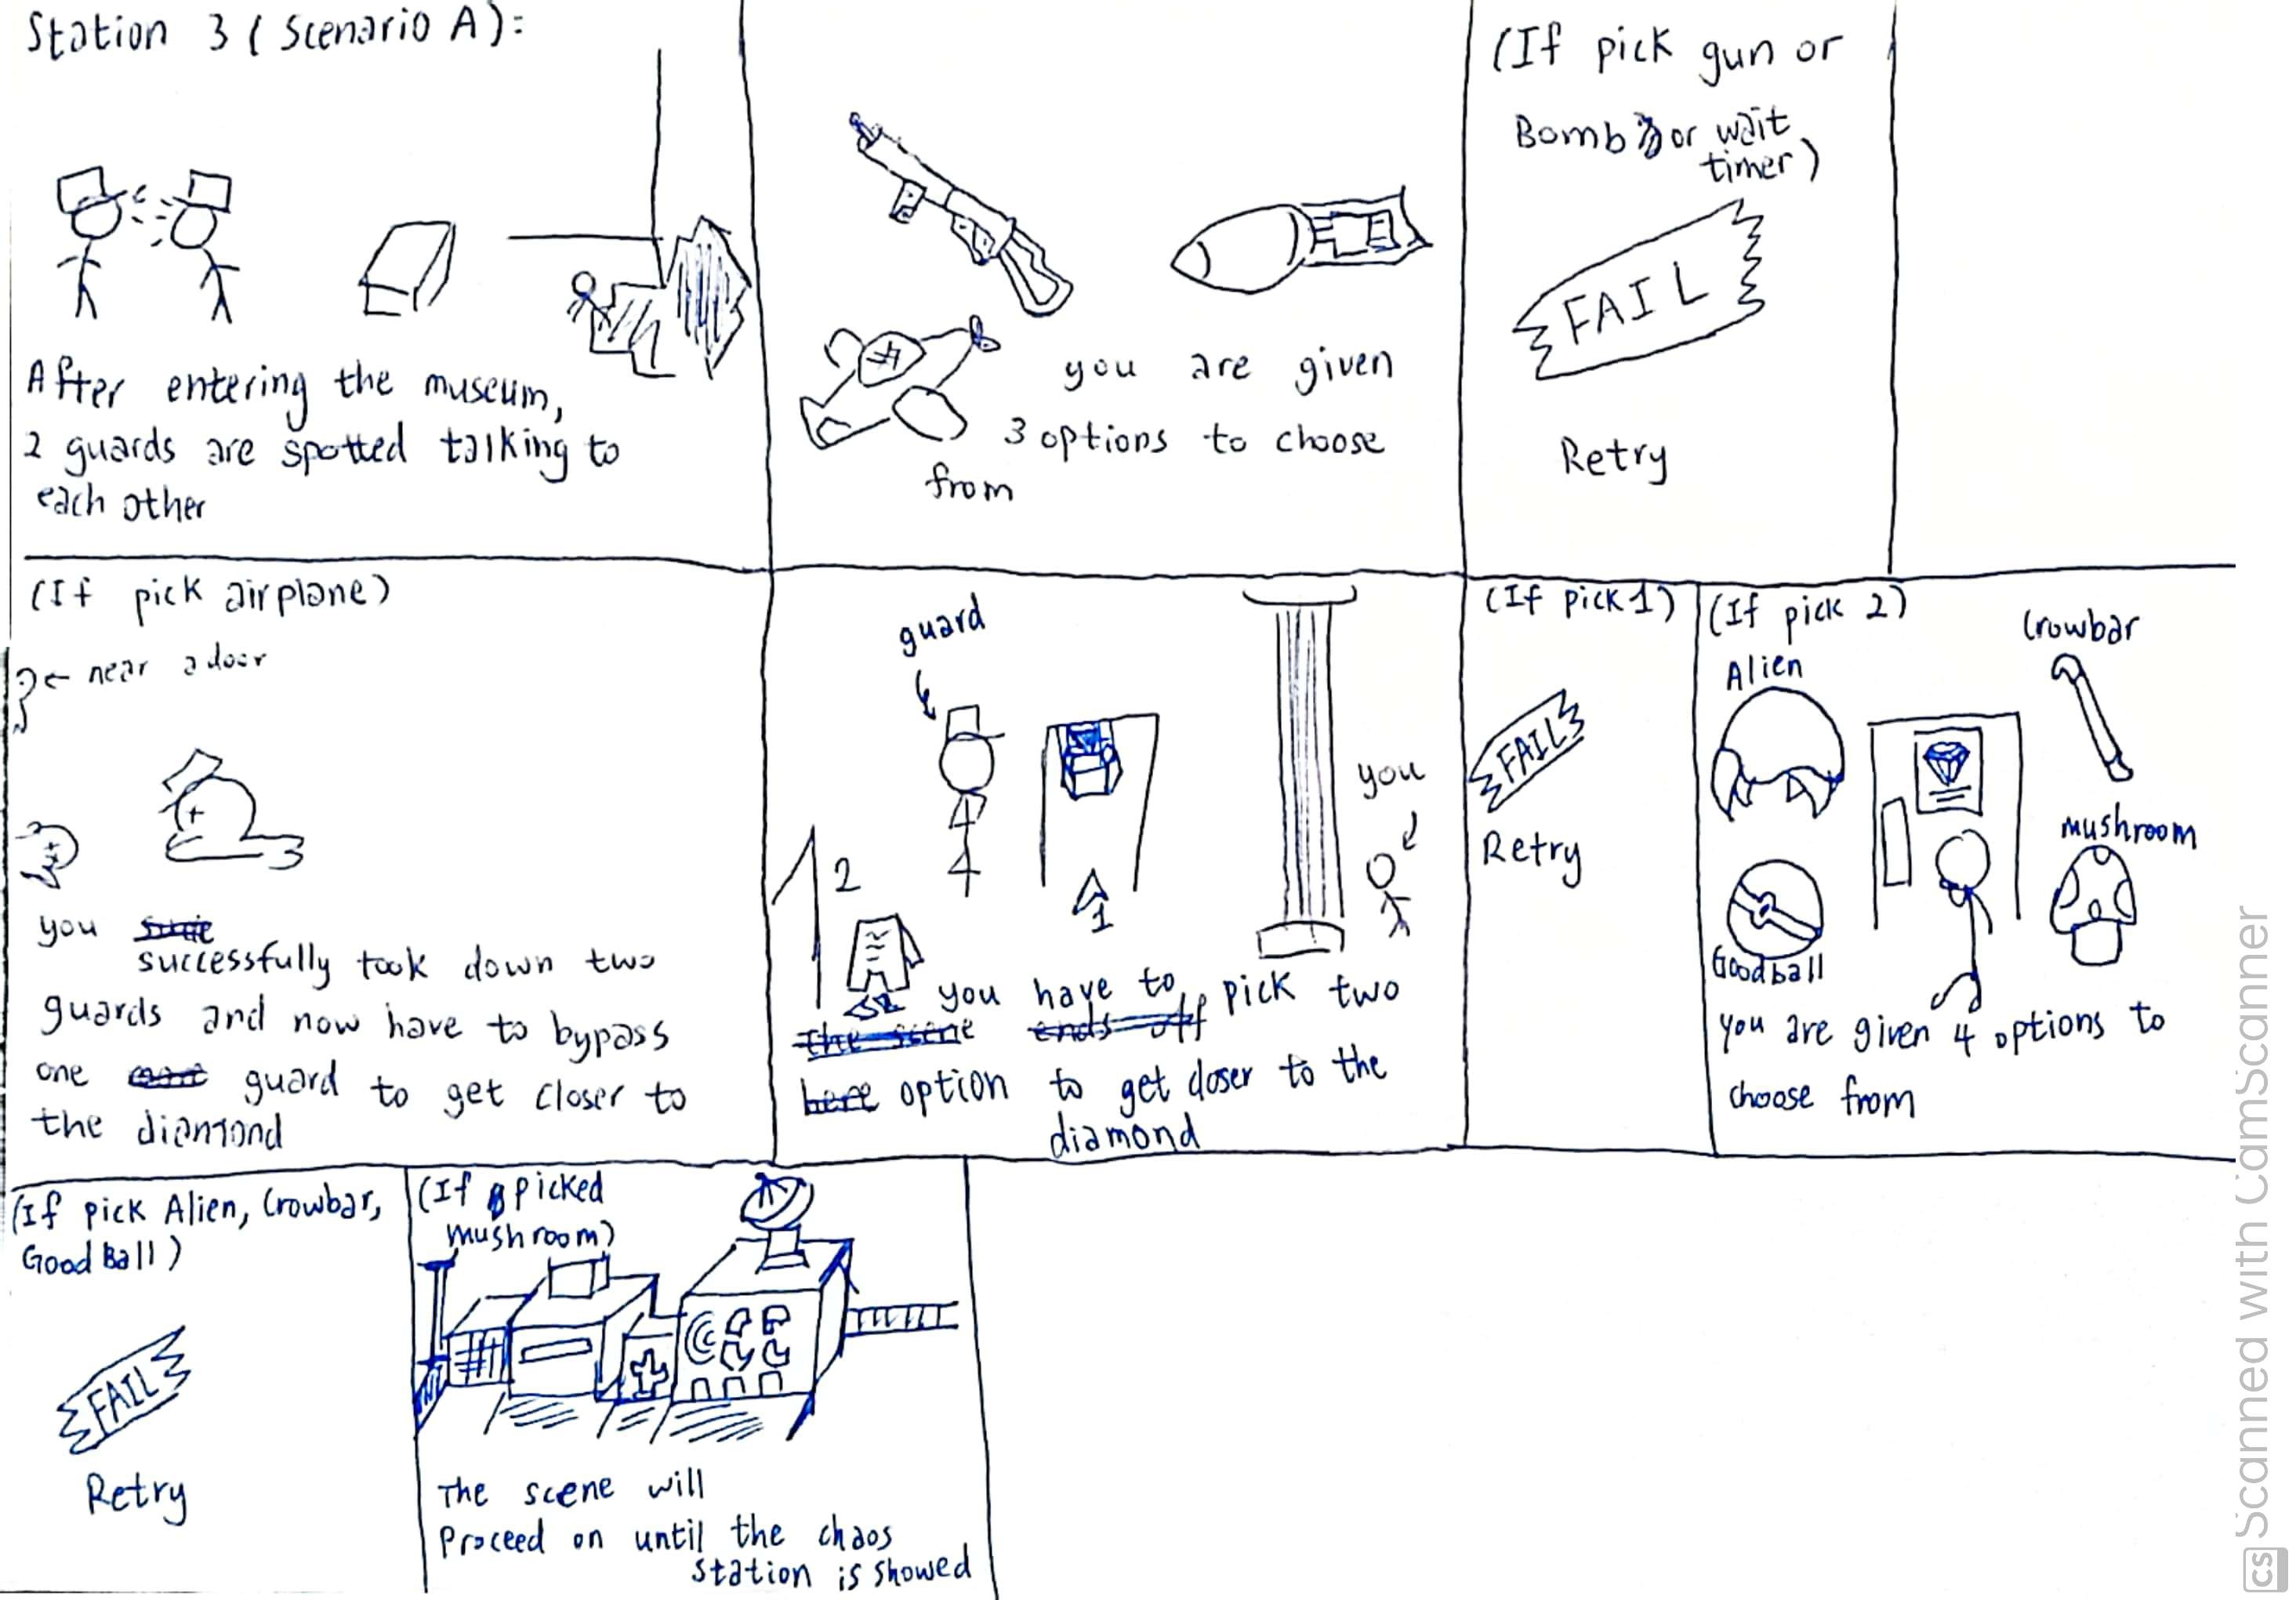 Station 3 (Scenario A):
After entering the museum,
2 guards are spotted talking to
each other
you are given
3 options to choose
from
(If pick gun or
Bomb or wait
timer)
FAIL
Retry
(If pick airplane)
← near a door
you
successfully took down two
guards and now have to bypass
one guard to get closer to
the diamond
guard
you
2
1
you have to pick two
the scene ends off
here option to get closer to the
diamond
(If pick 1)
FAIL
Retry
(If pick 2)
Crowbar
Alien
mushroom
Goodball
you are given 4 options to
choose from
(If pick Alien, Crowbar,
Good Ball)
FAIL
Retry
(If picked
mushroom)
The scene will
Proceed on until the chaos
station is showed
CS Scanned with CamScanner